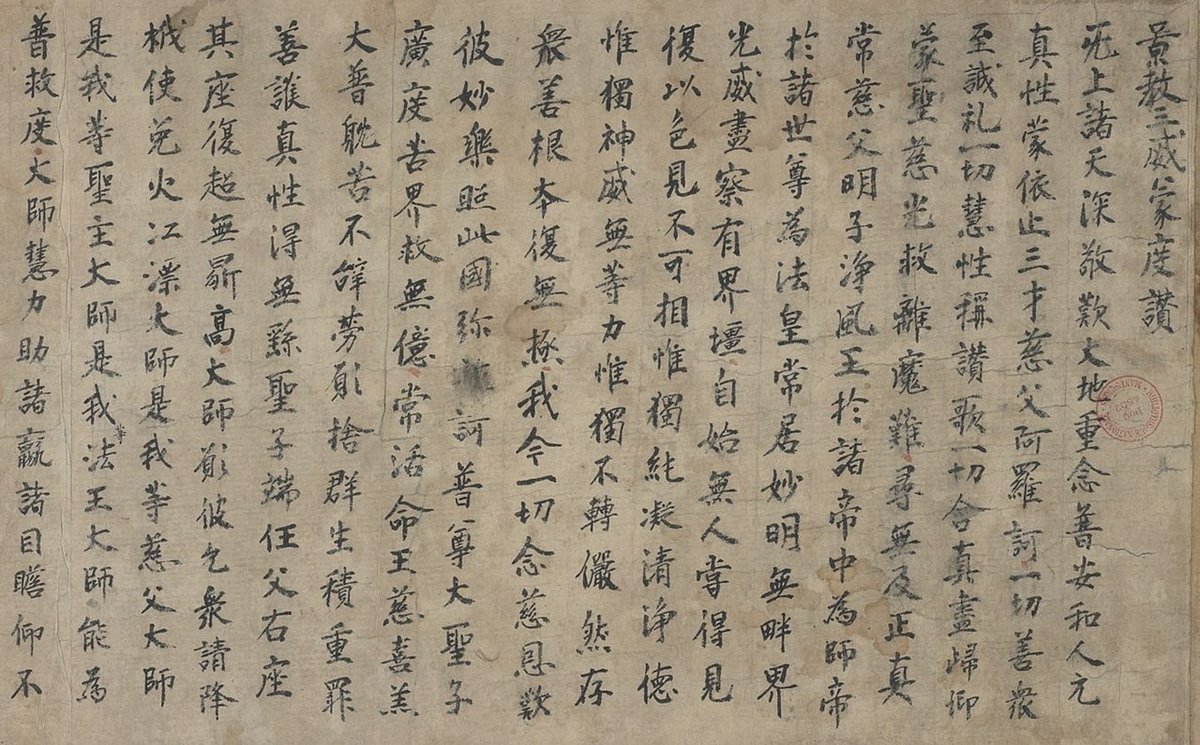 景教三威蒙度讃
旡上諸天深敬歎大地重念普安和人元
真性蒙依止三才慈父阿羅訶一切善衆
至誠礼一切慧性稱讃歌一切含真盡歸仰
蒙聖慈光救離魔難尋無及正真
常慈父明子淨風王於諸帝中為師帝
於諸世尊為法皇常居妙明無畔界
光威盡察有界壃自始無人嘗得見
復以色見不可相惟獨純凝清淨德
惟獨神威無等力惟獨不轉儼然存
衆善根本復無極我今一切念慈恩歎
彼妙樂照此國弥訶普尊大聖子
廣度苦界救無億常活命王慈喜羔
大普耽苦不辞勞願捨群生積重罪
善護真性得無繇聖子端任父右座
其座復超無鼎高大師願彼乞衆請降
栰使免火江漂大師是我等慈父大師
是我等聖主大師是我法王大師能為
普救度大師慧力助諸羸諸目瞻仰不